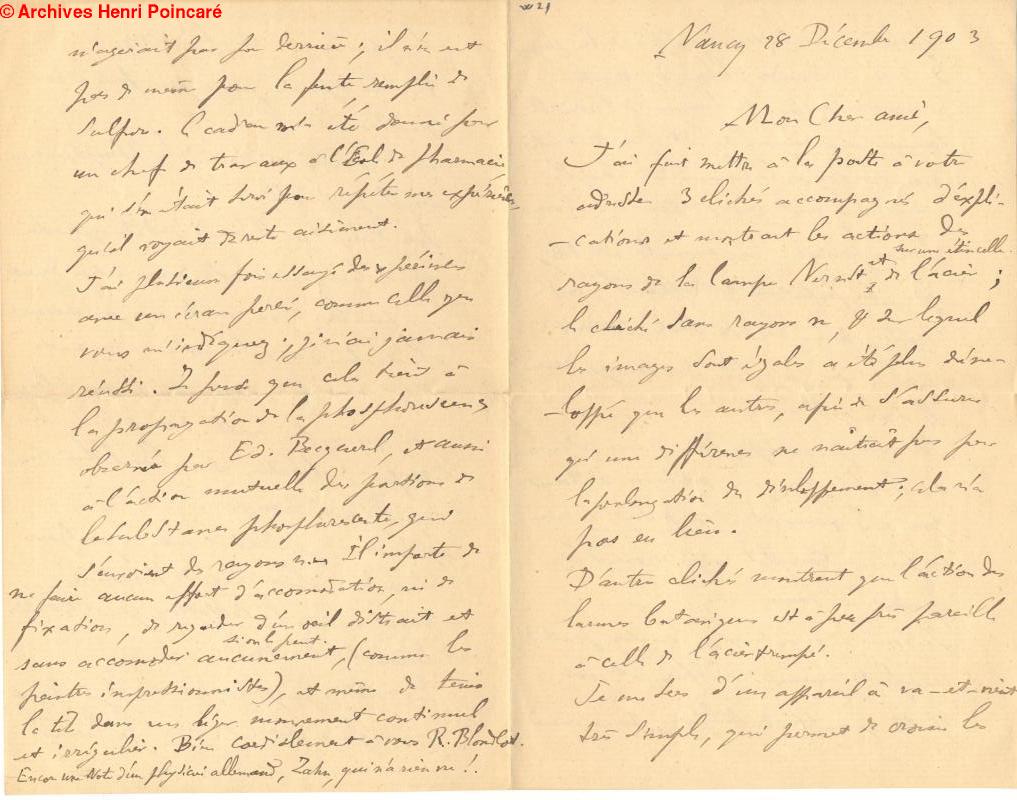 © Archives Henri Poincaré
Nancy 28 Décembre 1903
Mon Cher ami,
J'ai fait mettre à la poste à votre
adresse 3 clichés accompagnés d'expli-
-cations et montrant les actions des
rayons de la lampe Nernst et de l'acier sur une étincelle ;
le cliché sans rayons n, et sur lequel
les images sont égales a été plus déve-
-loppé que les autres, afin de s'assurer
qu'une différence ne naîtrait pas par
la prolongation du développement ; cela n'a
pas eu lieu.
D'autres clichés montrent que l'action des
larmes bataviques est à peu près pareille
à celle de l'acier trempé.
Je me sers d'un appareil à va-et-vient
très simple, qui permet de croiser les
n'agirait pas par derrière ; il n'en est
pas de même pour la fente remplie de
sulfure. Le cadran m'a été donné par
un chef de travaux à l'École de pharmacie
qui s'en était servi pour répéter mes expériences
qu'il voyait du reste aisément.
J'ai plusieurs fois essayé des expériences
avec un écran percé, comme celle que
vous m'indiquez ; je n'ai jamais
réussi. Je pense que cela tient à
la propagation de la phosphorescence
observée par Ed. Becquerel, et aussi
à l'action mutuelle des portions de
la substance phosphorescente, qui
s'envoient des rayons n. Il importe de
ne faire aucun effort d'accomodation, ni de
fixation, de regarder d'un oeil distrait et
sans accomoder aucunement, si on le peut. (comme les
peintres impressionnistes), et même de tenir
la tête dans un léger mouvement continuel
et irrégulier. Bien cordialement à vous R. Blondlot.
Encore une Note d'un physicien allemand, Zahn, qui n'a rien vu !.